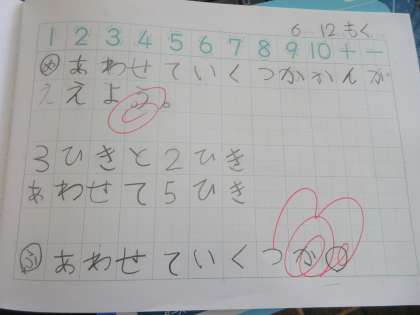 6 12 もく
1 2 3 4 5 6 7 8 9 10 + −
め あわせていくつかかんが
ええよう。
3ひきと2ひき
あわせて5ひき
ふ あわせていくつか